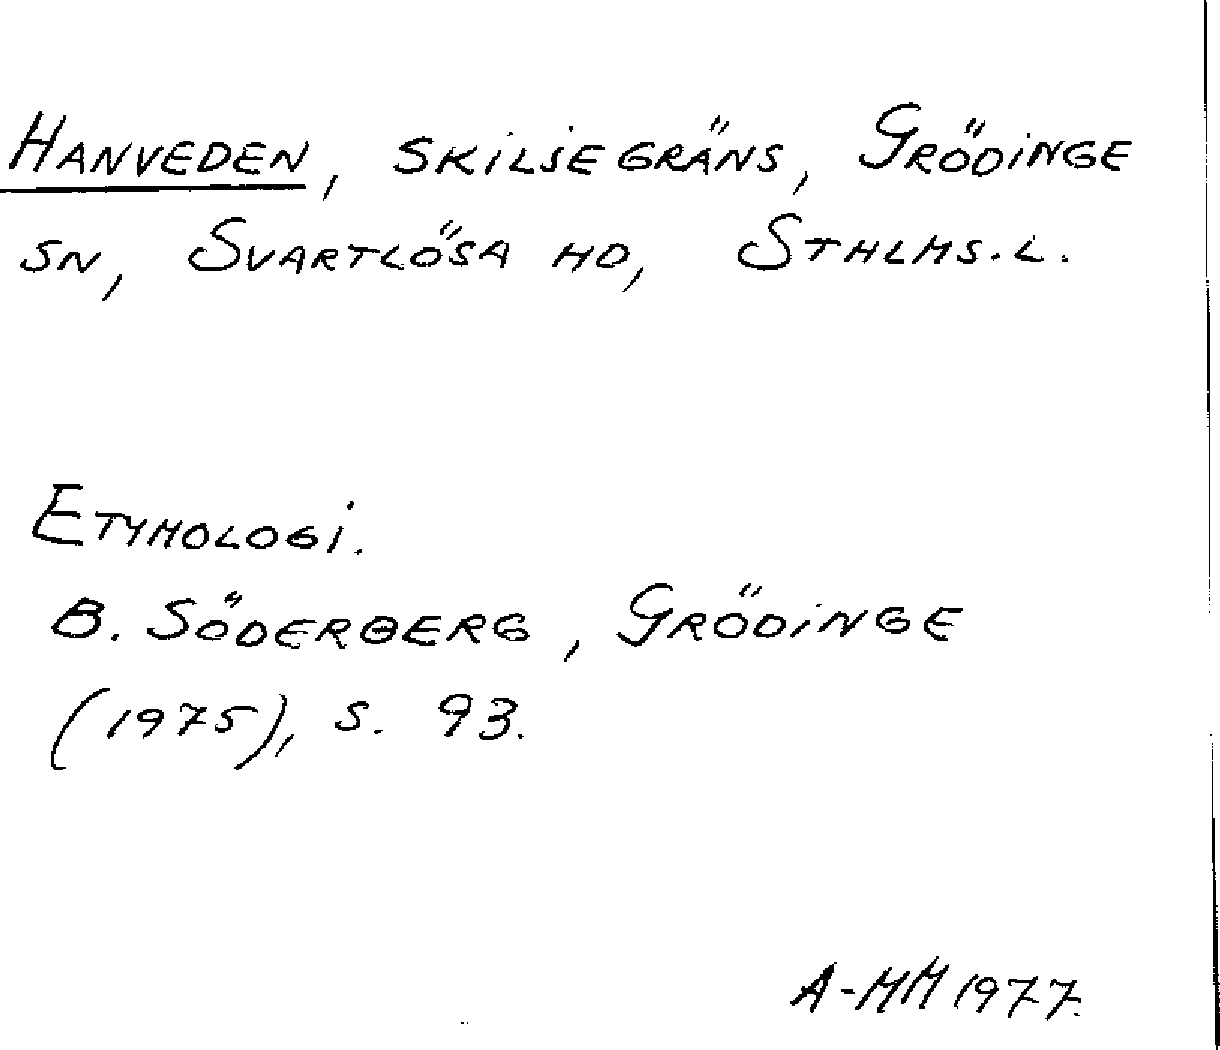 HANVEDEN, SKILJEGRÄNS, GRÖDINGE
SN, SVARTLÖSA HD, STHLMS.L.
ETYMOLOGI.
B. SÖDERBERG, GRÖDINGE
(1975), S. 93.
A-MM 1977.